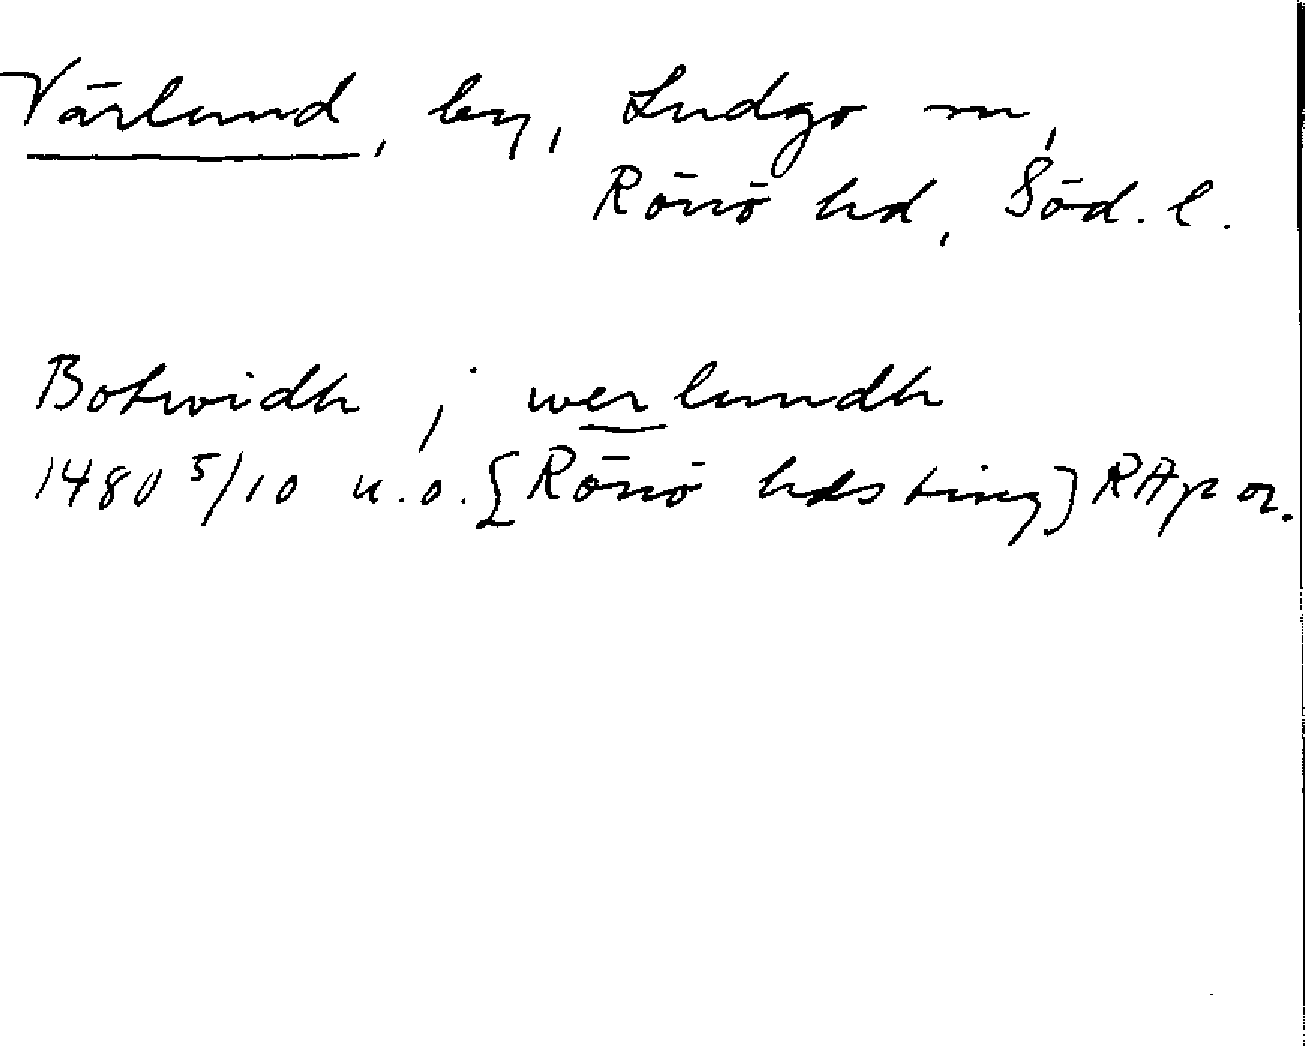 Värlund, by, Ludgo sn,
Rönö hd, Söd. l.
Botwidh j werlundh
1480 5/10 u.o. [Rönö hds ting] RAp or.